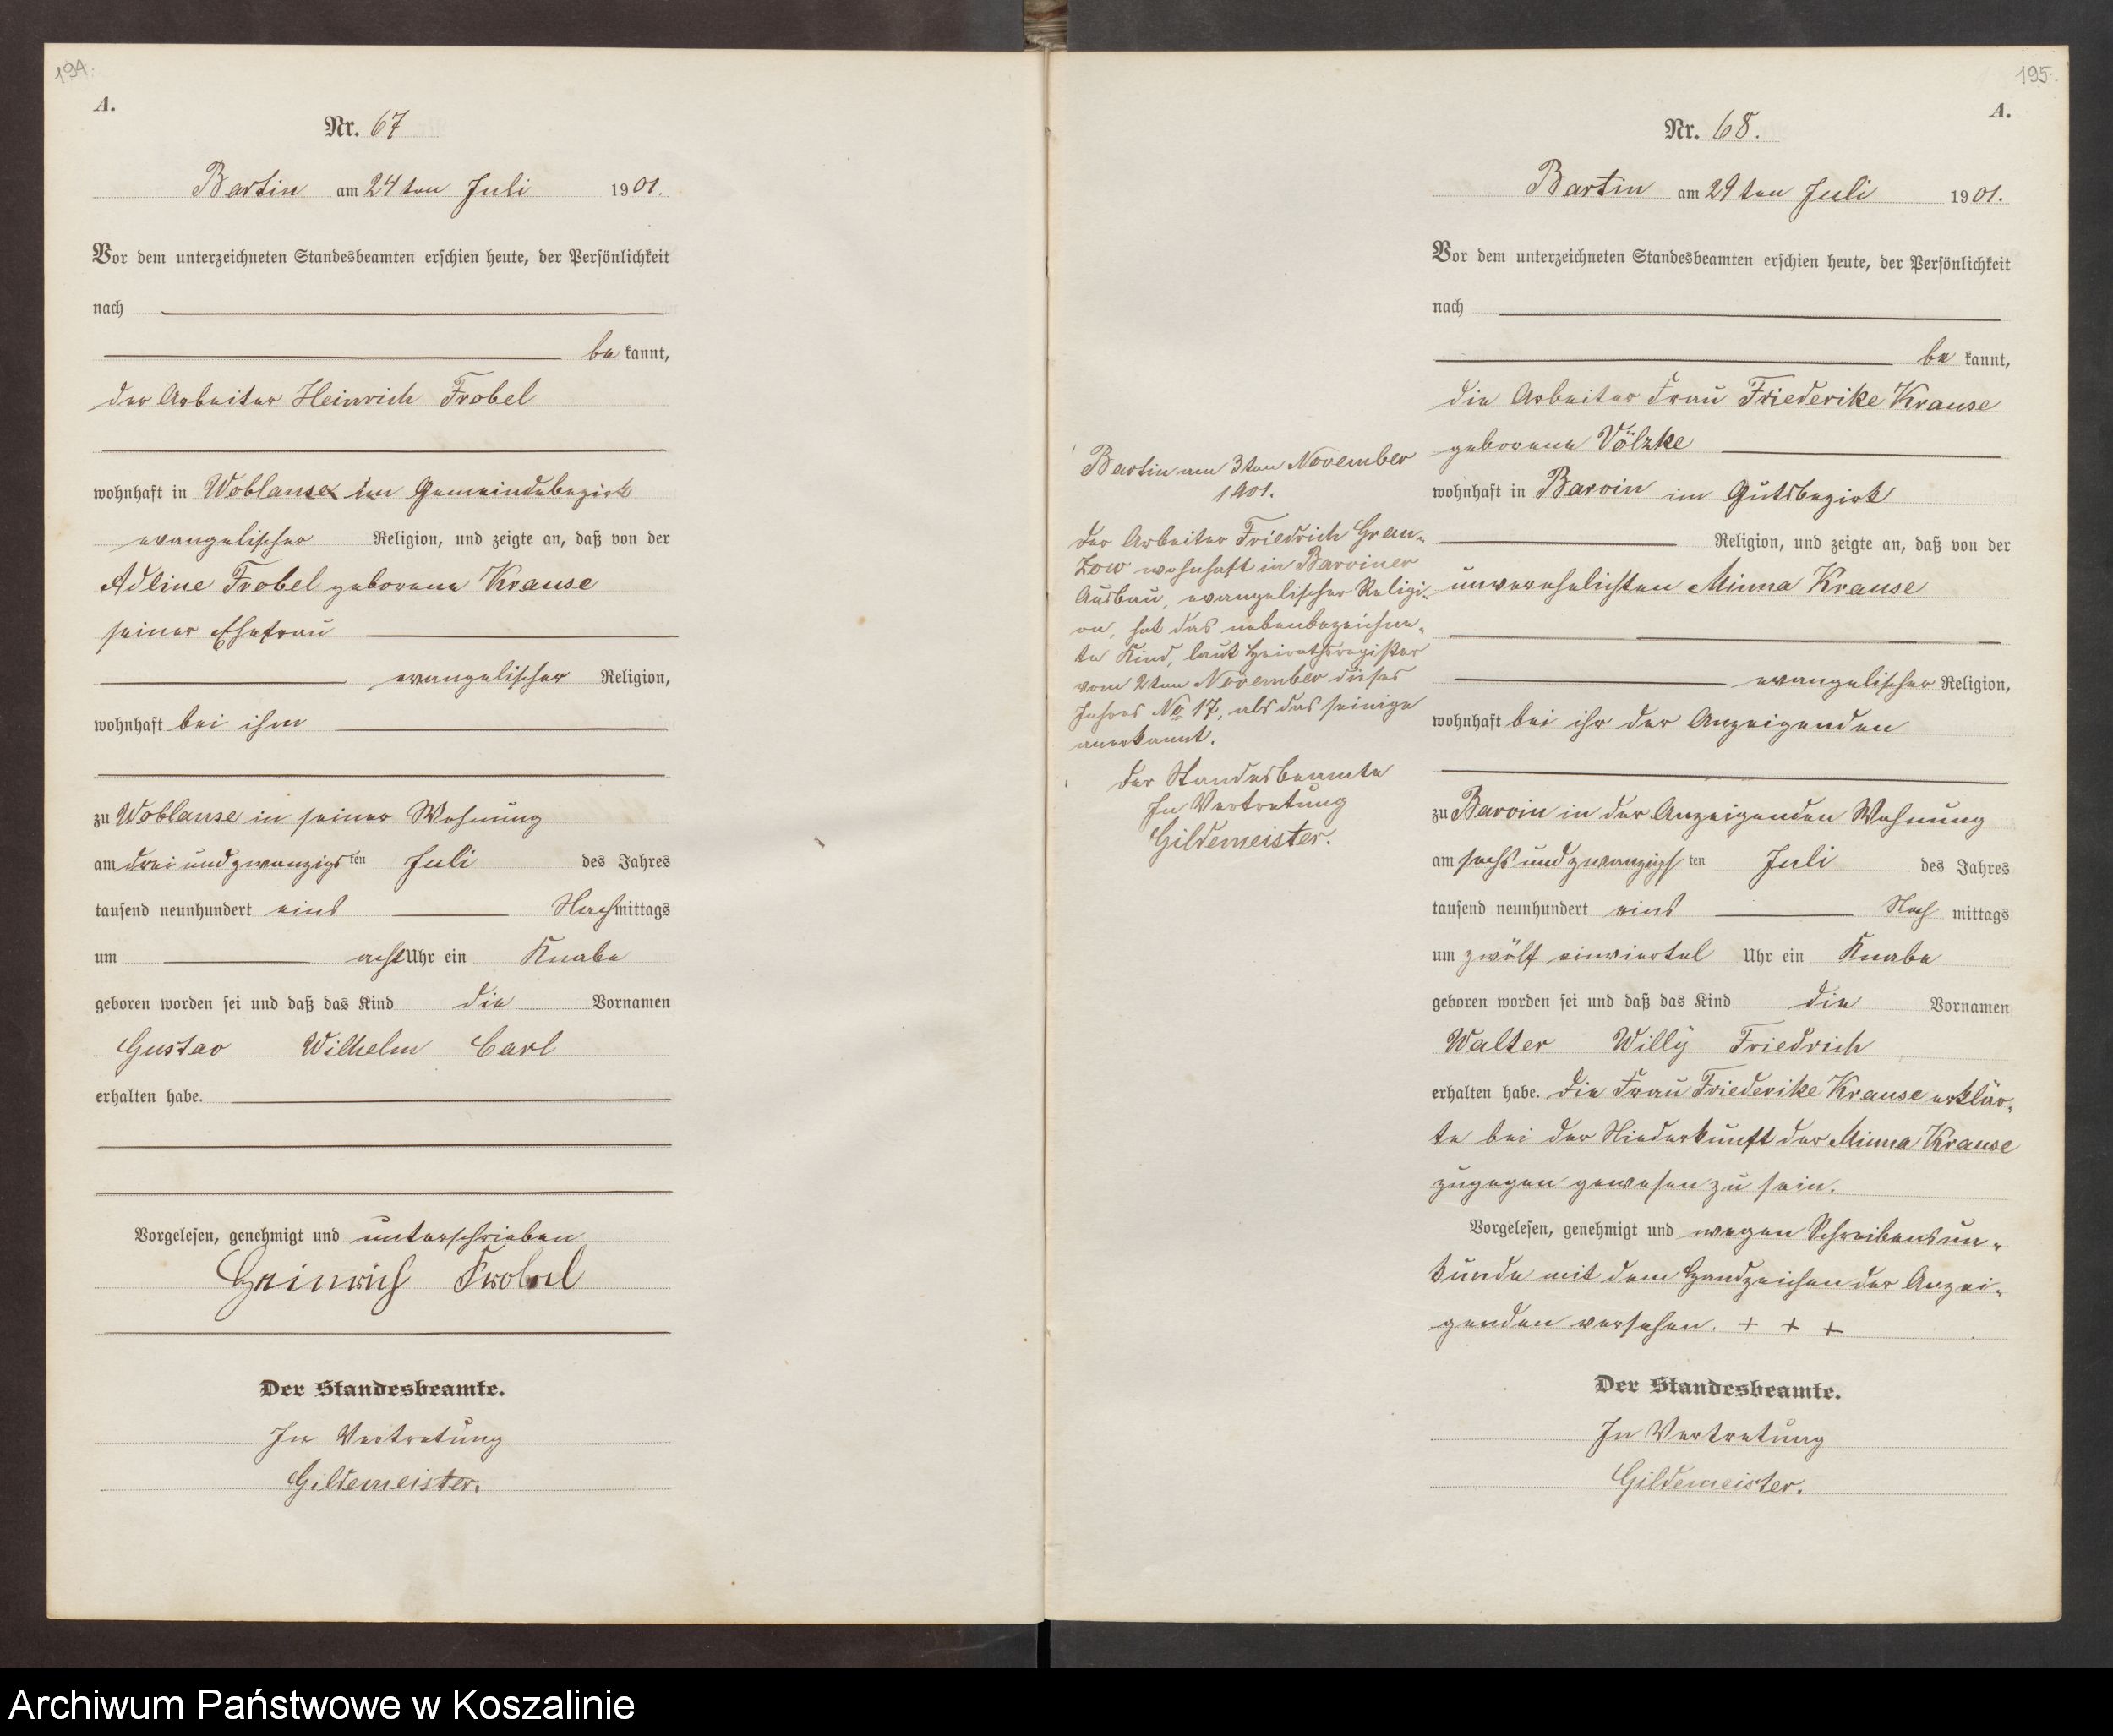 194.
A.
Nr. 67
Bartin am 24ten Juli 1901.
Vor dem unterzeichneten Standesbeamten erschien heute, der Persönlichkeit
nach
bekannt,
der Arbeiter Heinrich Frobel
wohnhaft in Woblanse im Gemeindebezirk
evangelischer Religion, und zeigte an, daß von der
Adline Frobel geborene Krause
seiner Ehefrau
evangelischer Religion,
wohnhaft bei ihm
zu Woblanse in seiner Wohnung
am drei und zwanzigsten Juli des Jahres
tausend neunhundert eins Nachmittags
um acht Uhr ein Knabe
geboren worden sei und daß das Kind die Vornamen
Gustav Wilhelm Carl
erhalten habe.
Vorgelesen, genehmigt und unterschrieben
Heinrich Frobel
Der Standesbeamte.
In Vertretung
Gildemeister.
195.
A.
Nr. 68.
Bartin am 29ten Juli 1901.
Vor dem unterzeichneten Standesbeamten erschien heute, der Persönlichkeit
nach
bekannt,
die Arbeiter Frau Friederike Krause
geborene Völzke
wohnhaft in Barvin im Gutsbezirk
Religion, und zeigte an, daß von der
unverehelichten Minna Krause
evangelischer Religion,
wohnhaft bei ihr der Anzeigenden
zu Barvin in der Anzeigenden Wohnung
am sechs und zwanzigsten Juli des Jahres
tausend neunhundert eins Nachmittags
um zwölf einviertel Uhr ein Knabe
geboren worden sei und daß das Kind die Vornamen
Walter Willy Friedrich
erhalten habe. Die Frau Friederike Krause erklär-
te bei der Niederkunft der Minna Krause
zugegen gewesen zu sein.
Vorgelesen, genehmigt und wegen Schreibensun-
kunde mit dem Handzeichen der Anzei-
genden versehen. + + +
Der Standesbeamte.
In Vertretung
Gildemeister.
Bartin am 3ten November
1901.
Der Arbeiter Friedrich Gran-
zow wohnhaft in Barviner
Ausbau, evangelischer Religi-
on, hat das nebenbezeichne-
te Kind, laut Heirathsregister
vom 2ten November dieses
Jahres No 17, als das seinige
anerkannt.
Der Standesbeamte
In Vertretung
Gildemeister.
Archiwum Państwowe w Koszalinie